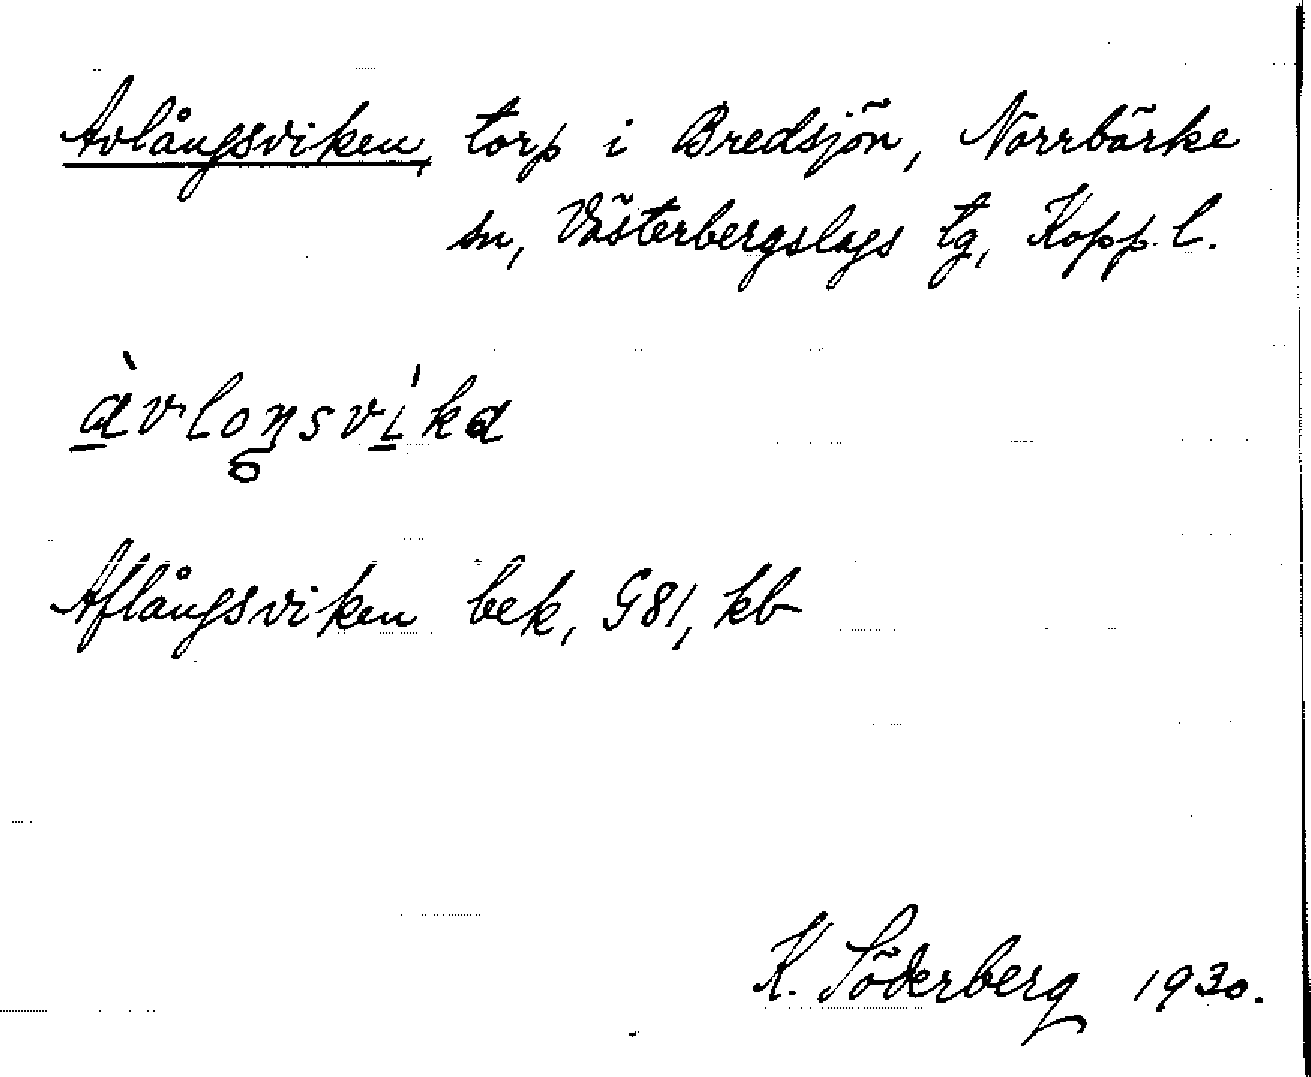 Avlångsviken, torp i Bredsjön, Norrbärke
sn, Västerbergslags tg, Kopp. l.
àvloŋsvìka
Aflångsviken bek, G81, kb
K. Söderberg 1930.